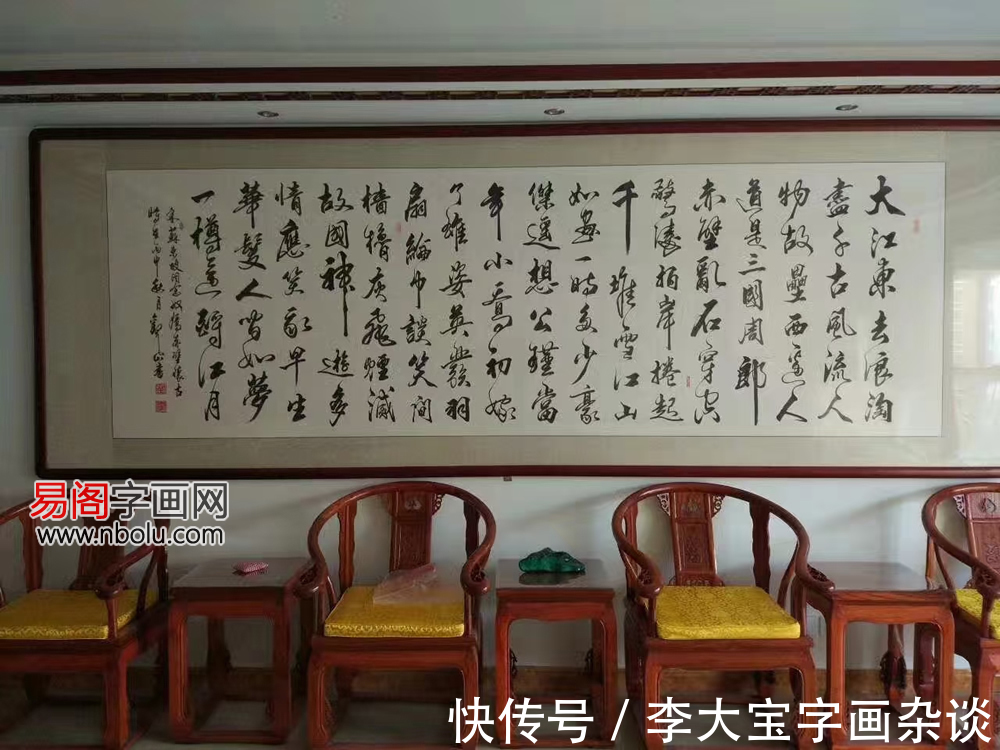 大江東去浪淘
盡千古風流人
物故壘西邊人
道是三國周郎
赤壁亂石穿空
驚濤拍岸捲起
千堆雪江山
如畫一時多少豪
傑遥想公瑾當
年小喬初嫁
了雄姿英發羽
扇綸巾談笑間
檣櫓灰飛煙滅
故國神遊多
情應笑我早生
華髮人間如夢
一樽還酹江月
宋蘇東坡詞念奴嬌赤壁懷古
丙申秋月
易阁字画网
www.nbolu.com
快传号 / 李大宝字画杂谈